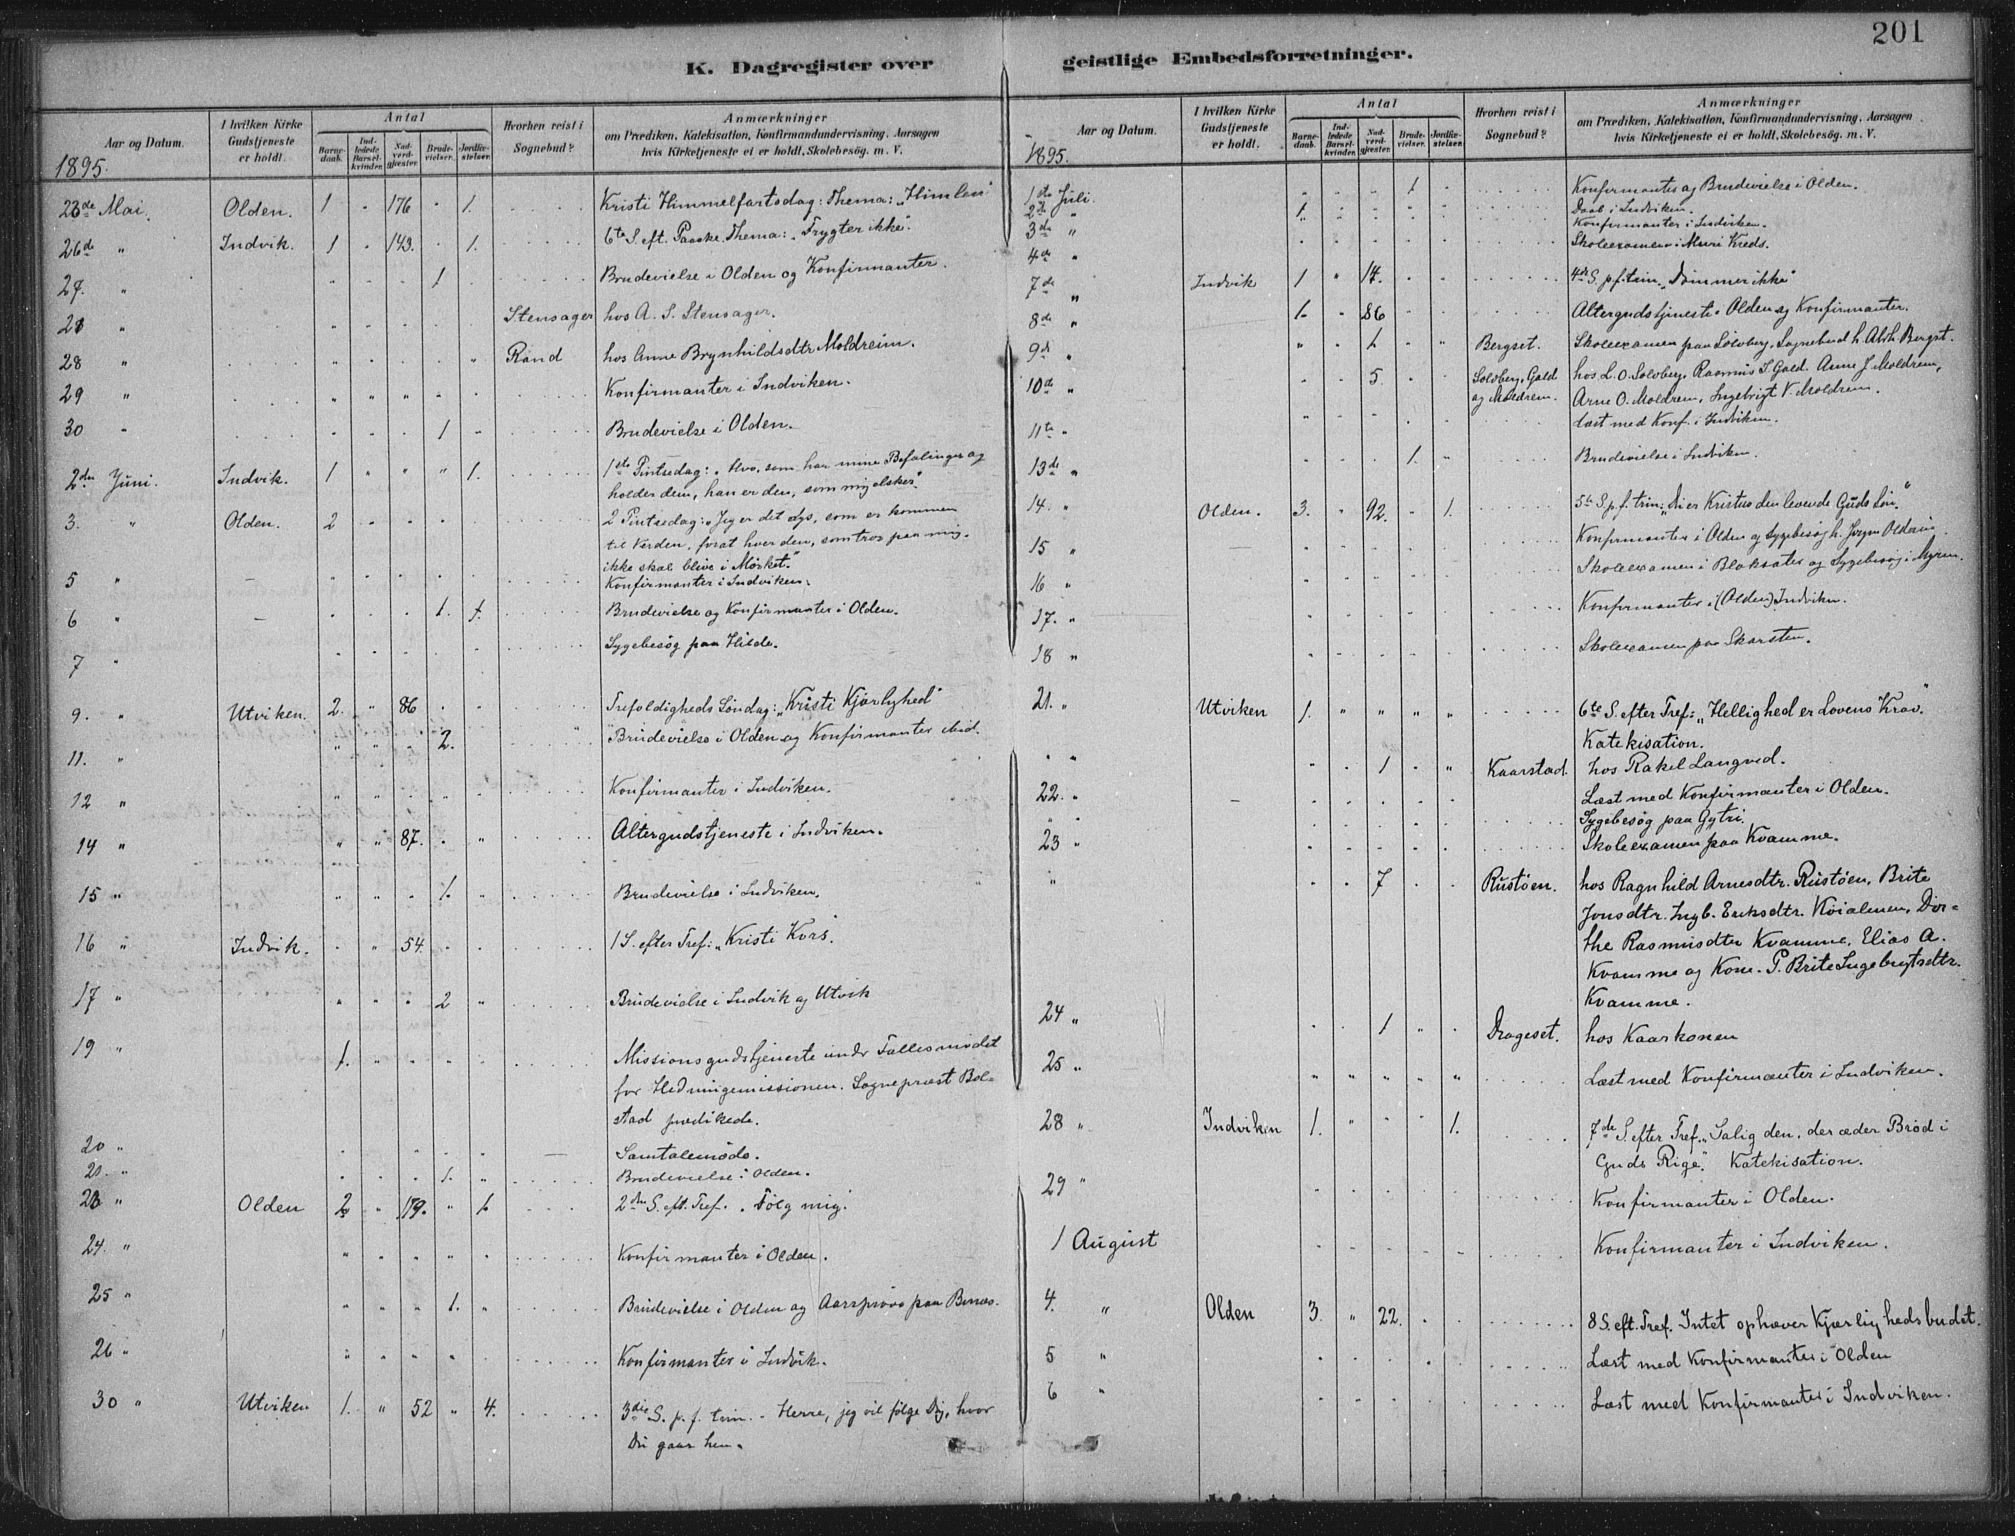 201
K. Dagregister over geistlige Embedsforretninger.
Aar og Datum.
I hvilken Kirke Gudstjeneste er holdt.
Antal
Barnedaab.
Indledede Barselkvinder.
Nadverdgjæster.
Brudevielser.
Jordfæstelser.
Hvorhen reist i Sognebud?
Anmærkninger
om Prædiken, Katekisation, Konfirmandundervisning, Aarsagen
hvis Kirketjeneste ei er holdt, Skolebesøg. m. V.
1895.
23de Mai. Olden. 1 " 176 " 1. Kristi Himmelfartsdag: Thema: "Himlen"
26de " Indvik. 1 " 143. " 1. 6te S. eft. Paaske. Thema: "Frygter ikke".
27. " 1 Brudevielse i Olden og Konfirmanter.
28 " Stensager hos A. S. Stensager.
28 " Rand hos Anne Brynhildsdtr Moldreim.
29 " Konfirmanter i Indviken.
30 " 1 " Brudevielse i Olden.
2den Juni. Indvik. 1 " " " 1. 1ste Pintsedag: "Hvo, som har mine Befalinger og
holder dem, han er den, som mig elsker".
3. " Olden. 2 2 Pintsedag: "Jeg er det Lys, som er kommen
til Verden, forat hver den, som tror paa mig,
ikke skal blive i Mørket."
5 " Konfirmanter i Indviken.
6 " 1. 1. Brudevielse og Konfirmanter i Olden.
7 " Sygebesøg paa Hilde.
9. " Utviken. 2. " 86 Trefoldigheds Søndag: "Kristi Kjærlighed"
11. " 2. Brudevielse i Olden og Konfirmanter ibid.
12 " Konfirmanter i Indviken.
14 " 87. Altergudstjeneste i Indviken.
15 " 1. Brudevielse i Indviken.
16 " Indvik. 54. 1 S. efter Tref: "Kristi Kors.
17 " 2 Brudevielse i Indvik og Utvik
19 " 1. Missionsgudstjeneste under Fællesmødet
for Hedningemissionen. Sognepræst Bol-
stad prædikede.
20 " Samtalemøde.
21. " 1. Brudevielse i Olden.
23 " Olden 2 " 179. " 1 2den S. eft. Tref. "Følg mig".
24. " Konfirmanter i Olden.
25 " 1. Brudevielse i Olden og Aarsprøve paa
26 " Konfirmanter i Indvik.
30 " Utviken 1. " 52 " 4. 3die S. p. f. trin. - Herre, jeg vil følge Dig, hvor
Du gaar hen.
Aar og Datum.
I hvilken Kirke Gudstjeneste er holdt.
Antal
Barnedaab.
Indledede Barselkvinder.
Nadverdgjæster.
Brudevielser.
Jordfæstelser.
Hvorhen reist i Sognebud?
Anmærkninger
om Prædiken, Katekisation, Konfirmandundervisning, Aarsagen
hvis Kirketjeneste ei er holdt, Skolebesøg. m. V.
1895.
1ste Juli. 1 Konfirmanter og Brudevielse i Olden.
2den " 1. Daab i Indviken.
3die " Konfirmanter i Indviken.
4de " Skoleexamen i Muri Kreds.
7de " Indvik 1 " 14. 4de S. p. f. trin. "Dømmer ikke"
8de " 1. " 86 Altergudstjeneste i Olden og Konfirmanter.
9de " 1 Bergset. Skoleexamen paa Solvberg, Sognebud h. Bergset.
10de " 5. Solvberg, Gald
og Moldrem. hos L. O. Solvberg, Rasmus S. Gald. Anne J Moldrem,
Arne O. Moldrem, Ingebrigt V. Moldrem.
11te " Læst med Konf. i Indviken.
13de " 1. Brudevielse i Indviken.
14. " Olden. 3. " 92. " 1. 5te S. p. f. trin: "Du er Kristus den levende Guds Søn."
15 " Konfirmanter i Olden og Sygebesøg h. Jørgen Olden
16 " Skoleexamen i Blaksæter og Sygebesøg i Myren.
17. " Konfirmanter i (Olden) Indviken.
18 " Skoleexamen paa Skarsten.
21. " Utviken 1. " " " " 6te S. efter Tref: "Hellighed er Lovens Krav."
Katekisation.
" " 1 Kaarstad. hos Rakel Langved.
22. " Læst med Konfirmanter i Olden.
" " Sygebesøg paa Gytri.
23 " Skoleexamen paa Kvamme.
" 7 Rustøen. hos Ragnhild Arnesdtr. Rustøen, Brite
Jonsdtr. Ingb. Eriksdtr. Koialmen, Dor-
the Rasmusdtr Kvamme, Elias A.
Kvamme og Kone. P. Brite Ingebrigtsdtr.
Kvamme.
24 " 1 Drageset. hos Kaarkonen
25 " Læst med Konfirmanter i Indviken.
28 " Indviken 1. 1. 7de S. efter Tref. "Salig den, der æder Brød i
Guds Rige". Katekisation.
29 " Konfirmanter i Olden.
1 August Konfirmanter i Indviken.
4. " Olden 3. " 22. 8 S. eft. Tref. Intet ophæver Kjærlighedsbudet.
5 " Læst med Konfirmanter i Olden
6 " Læst med Konfirmanter i Indviken.